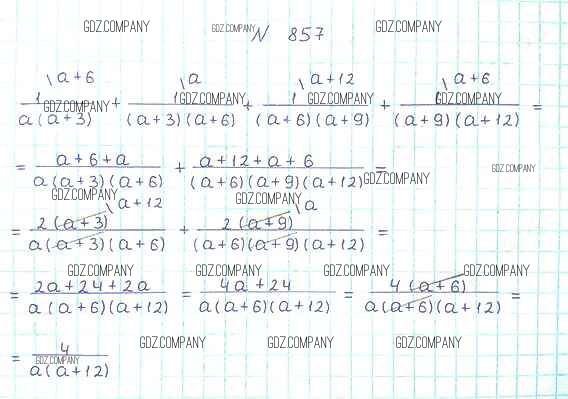 GDZ.COMPANY GDZ.COMPANY N 857 GDZ.COMPANY
\a+6 \a \a+12 \a+6
1/(a(a+3)) + 1/((a+3)(a+6)) + 1/((a+6)(a+9)) + 1/((a+9)(a+12)) =
GDZ.COMPANY GDZ.COMPANY GDZ.COMPANY GDZ.COMPANY
= (a+6+a)/(a(a+3)(a+6)) + (a+12+a+6)/((a+6)(a+9)(a+12)) =
GDZ.COMPANY GDZ.COMPANY GDZ.COMPANY GDZ.COMPANY
\a+12 \a
= 2(a+3)/(a(a+3)(a+6)) + 2(a+9)/((a+6)(a+9)(a+12)) =
GDZ.COMPANY GDZ.COMPANY GDZ.COMPANY GDZ.COMPANY
= (2a+24+2a)/(a(a+6)(a+12)) = (4a+24)/(a(a+6)(a+12)) = 4(a+6)/(a(a+6)(a+12)) =
GDZ.COMPANY GDZ.COMPANY GDZ.COMPANY GDZ.COMPANY
= 4/(a(a+12))